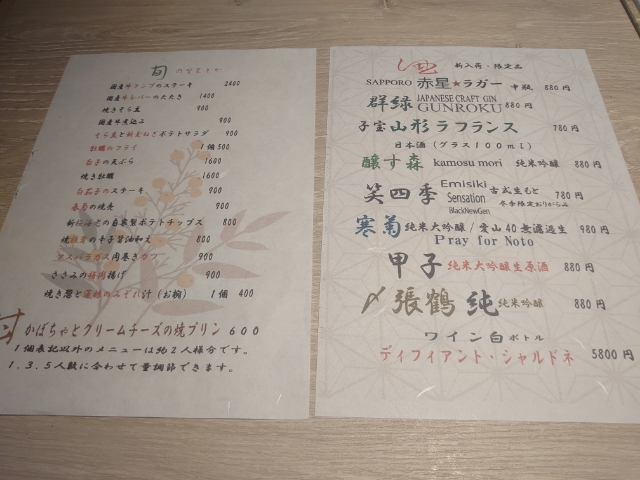 旬
国産牛ランプのステーキ 2400
国産牛レバーのたたき 1400
焼きそら豆 900
国産牛煮込み 900
そら豆と新玉ねぎポテトサラダ 900
牡蠣のフライ 1個500
白子の天ぷら 1600
焼き牡蠣 1600
白茄子のステーキ 900
春菊の焼売 900
の自家製ポテトチップス 800
の辛子醤油和え 800
アスパラガス肉巻きカツ 900
ささみの梅肉揚げ 900
焼き葱と蓮根のみぞれ汁（お椀） 1個 400
かぼちゃとクリームチーズの焼プリン 600
1個表記以外のメニューは約2人様分です。
1.3.5人数に合わせて量調節できます。
酒 新入荷・限定品
SAPPORO 赤星★ラガー 中瓶 880円
群緑 JAPANESE CRAFT GIN GUNROKU 880円
子宝山形ラフランス 780円
日本酒（グラス100ml）
醸す森 kamosu mori 純米吟醸 880円
笑四季 Emisiki Sensation BlackNewGen 古式生もと 冬季限定おりがらみ 780円
寒菊 純米大吟醸/愛山40無濾過生 980円
Pray for Noto
甲子 純米大吟醸生原酒 880円
〆張鶴 純 純米吟醸 880円
ワイン白ボトル
ディフィアント・シャルドネ 5800円